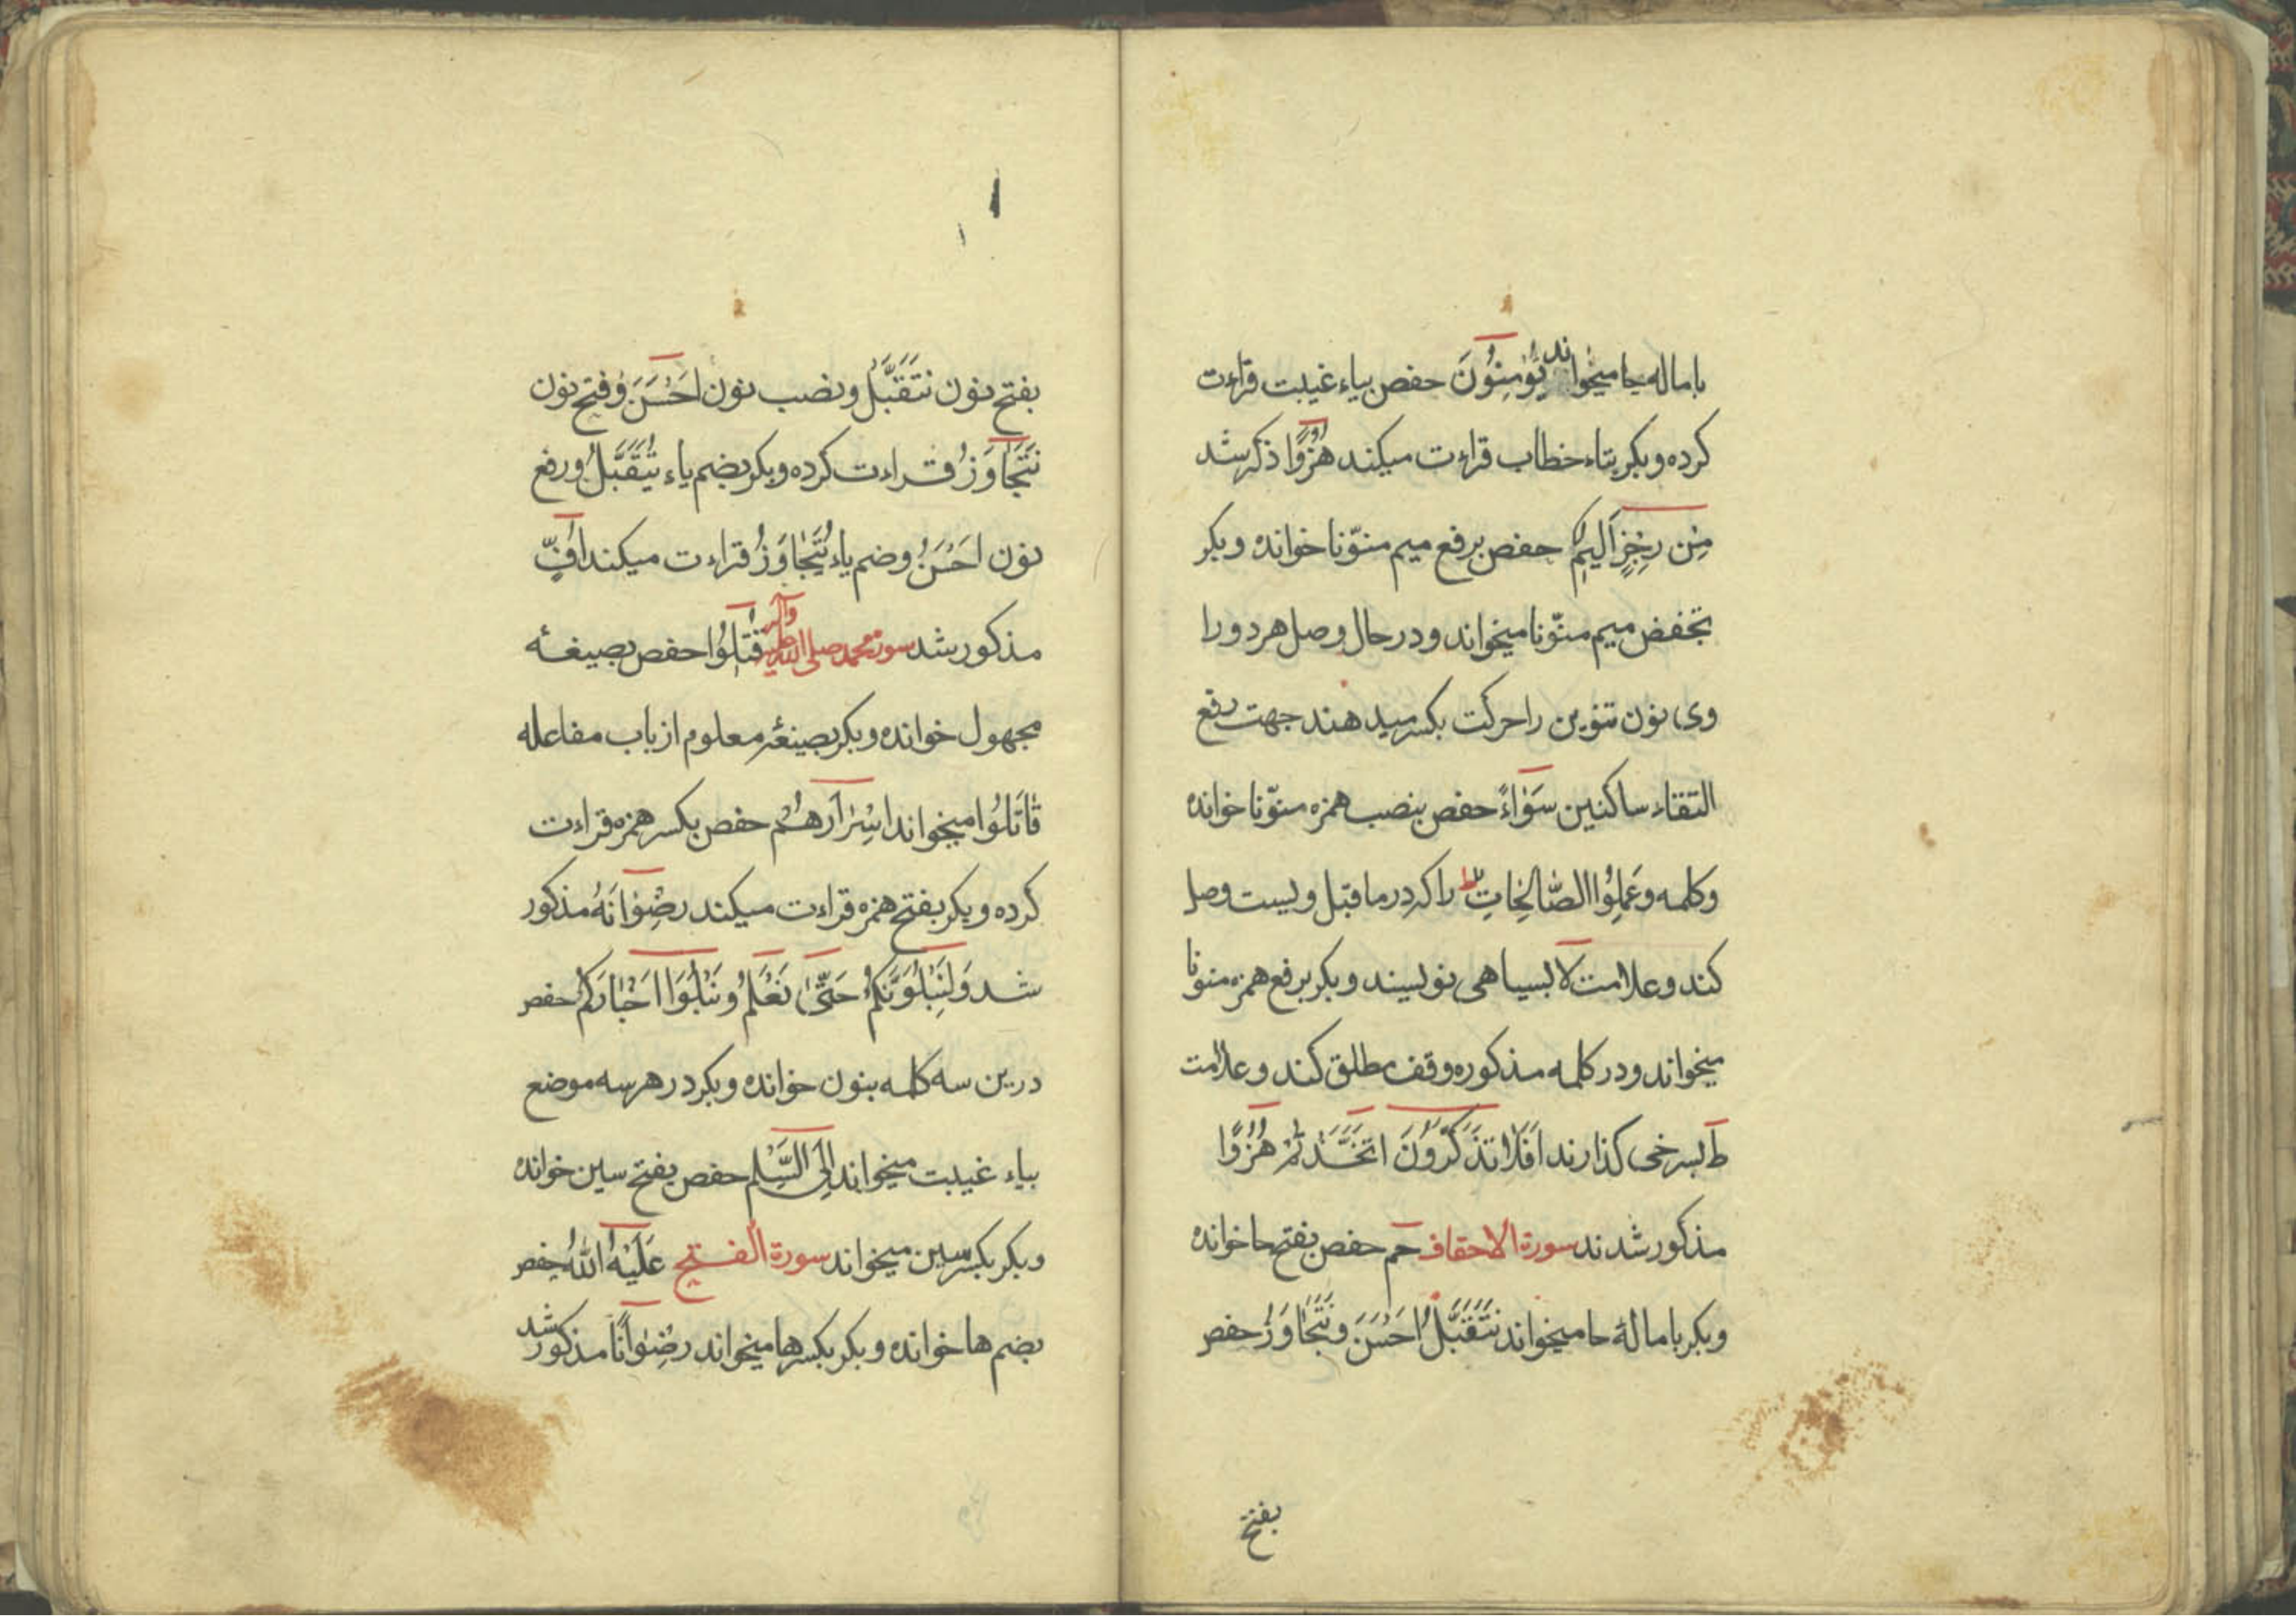 باماله حا میخواند یُؤْمِنُونَ حفص بیاء غیبت قراءت
کرده و بکر بتاء خطاب قراءت میکند هُزُوًا ذکر شد
مِن رِجْزٍ اَلیمٌ حفص برفع میم منوّنا خوانده و بکر
بخفض میم منوّنا میخواند و در حال وصل هر دو را
وی نون تنوین را حرکت بکسر میدهند جهت رفع
التقاء ساکنین سَوَاءً حفص بنصب همزه منوّنا خوانده
و کلمه وعَمِلُوا الصَّالِحَاتِ ط را که در ماقبل ویست وصل
کند و علامت لا بسیاهی نویسند و بکر برفع همزه منونا
میخواند و در کلمه مذکوره وقف مطلق کند و علامت
ط بسرخی کذارند اَفَلَا تَذَکَّرُونَ اتَّخَذْتُمْ هُزُوًا
مذکور شدند سورة الاحقاف حم حفص بفتح حا خوانده
و بکر بامالهٔ حا میخواند نَتَقَبَّلُ اَحْسَنَ و نَتَجَاوَزُ حفص
بفتح
بفتح نون نَتَقَبَّلُ و نصب نون اَحْسَنَ و فتح نون
نَتَجَاوَزُ قراءت کرده و بکر بضم یاء یُتَقَبَّلُ و رفع
نون اَحْسَنُ و ضم یاء یُتَجَاوَزُ قراءت میکند اُفٍّ
مذکور شد سورة محمد صلی الله علیه وآله قُتِلُوا حفص بصیغهٔ
مجهول خوانده و بکر بصیغهٔ معلوم از باب مفاعله
قَاتَلُوا میخواند اِسْرَارَهُمْ حفص بکسر همزه قراءت
کرده و بکر بفتح همزه قراءت میکند رِضْوَانَهُ مذکور
شد وَلَنَبْلُوَنَّکُمْ حَتَّی نَعْلَمَ و نَبْلُوَا اَخْبَارَکُمْ حفص
درین سه کلمه بنون خوانده و بکر در هر سه موضع
بیاء غیبت میخواند اِلَی السَّلْمِ حفص بفتح سین خوانده
و بکر بکسر سین میخواند سورة الفتح عَلَیْهُ اللّٰهُ حفص
بضم ها خوانده و بکر بکسر ها میخواند رِضْوَانًا مذکور شد